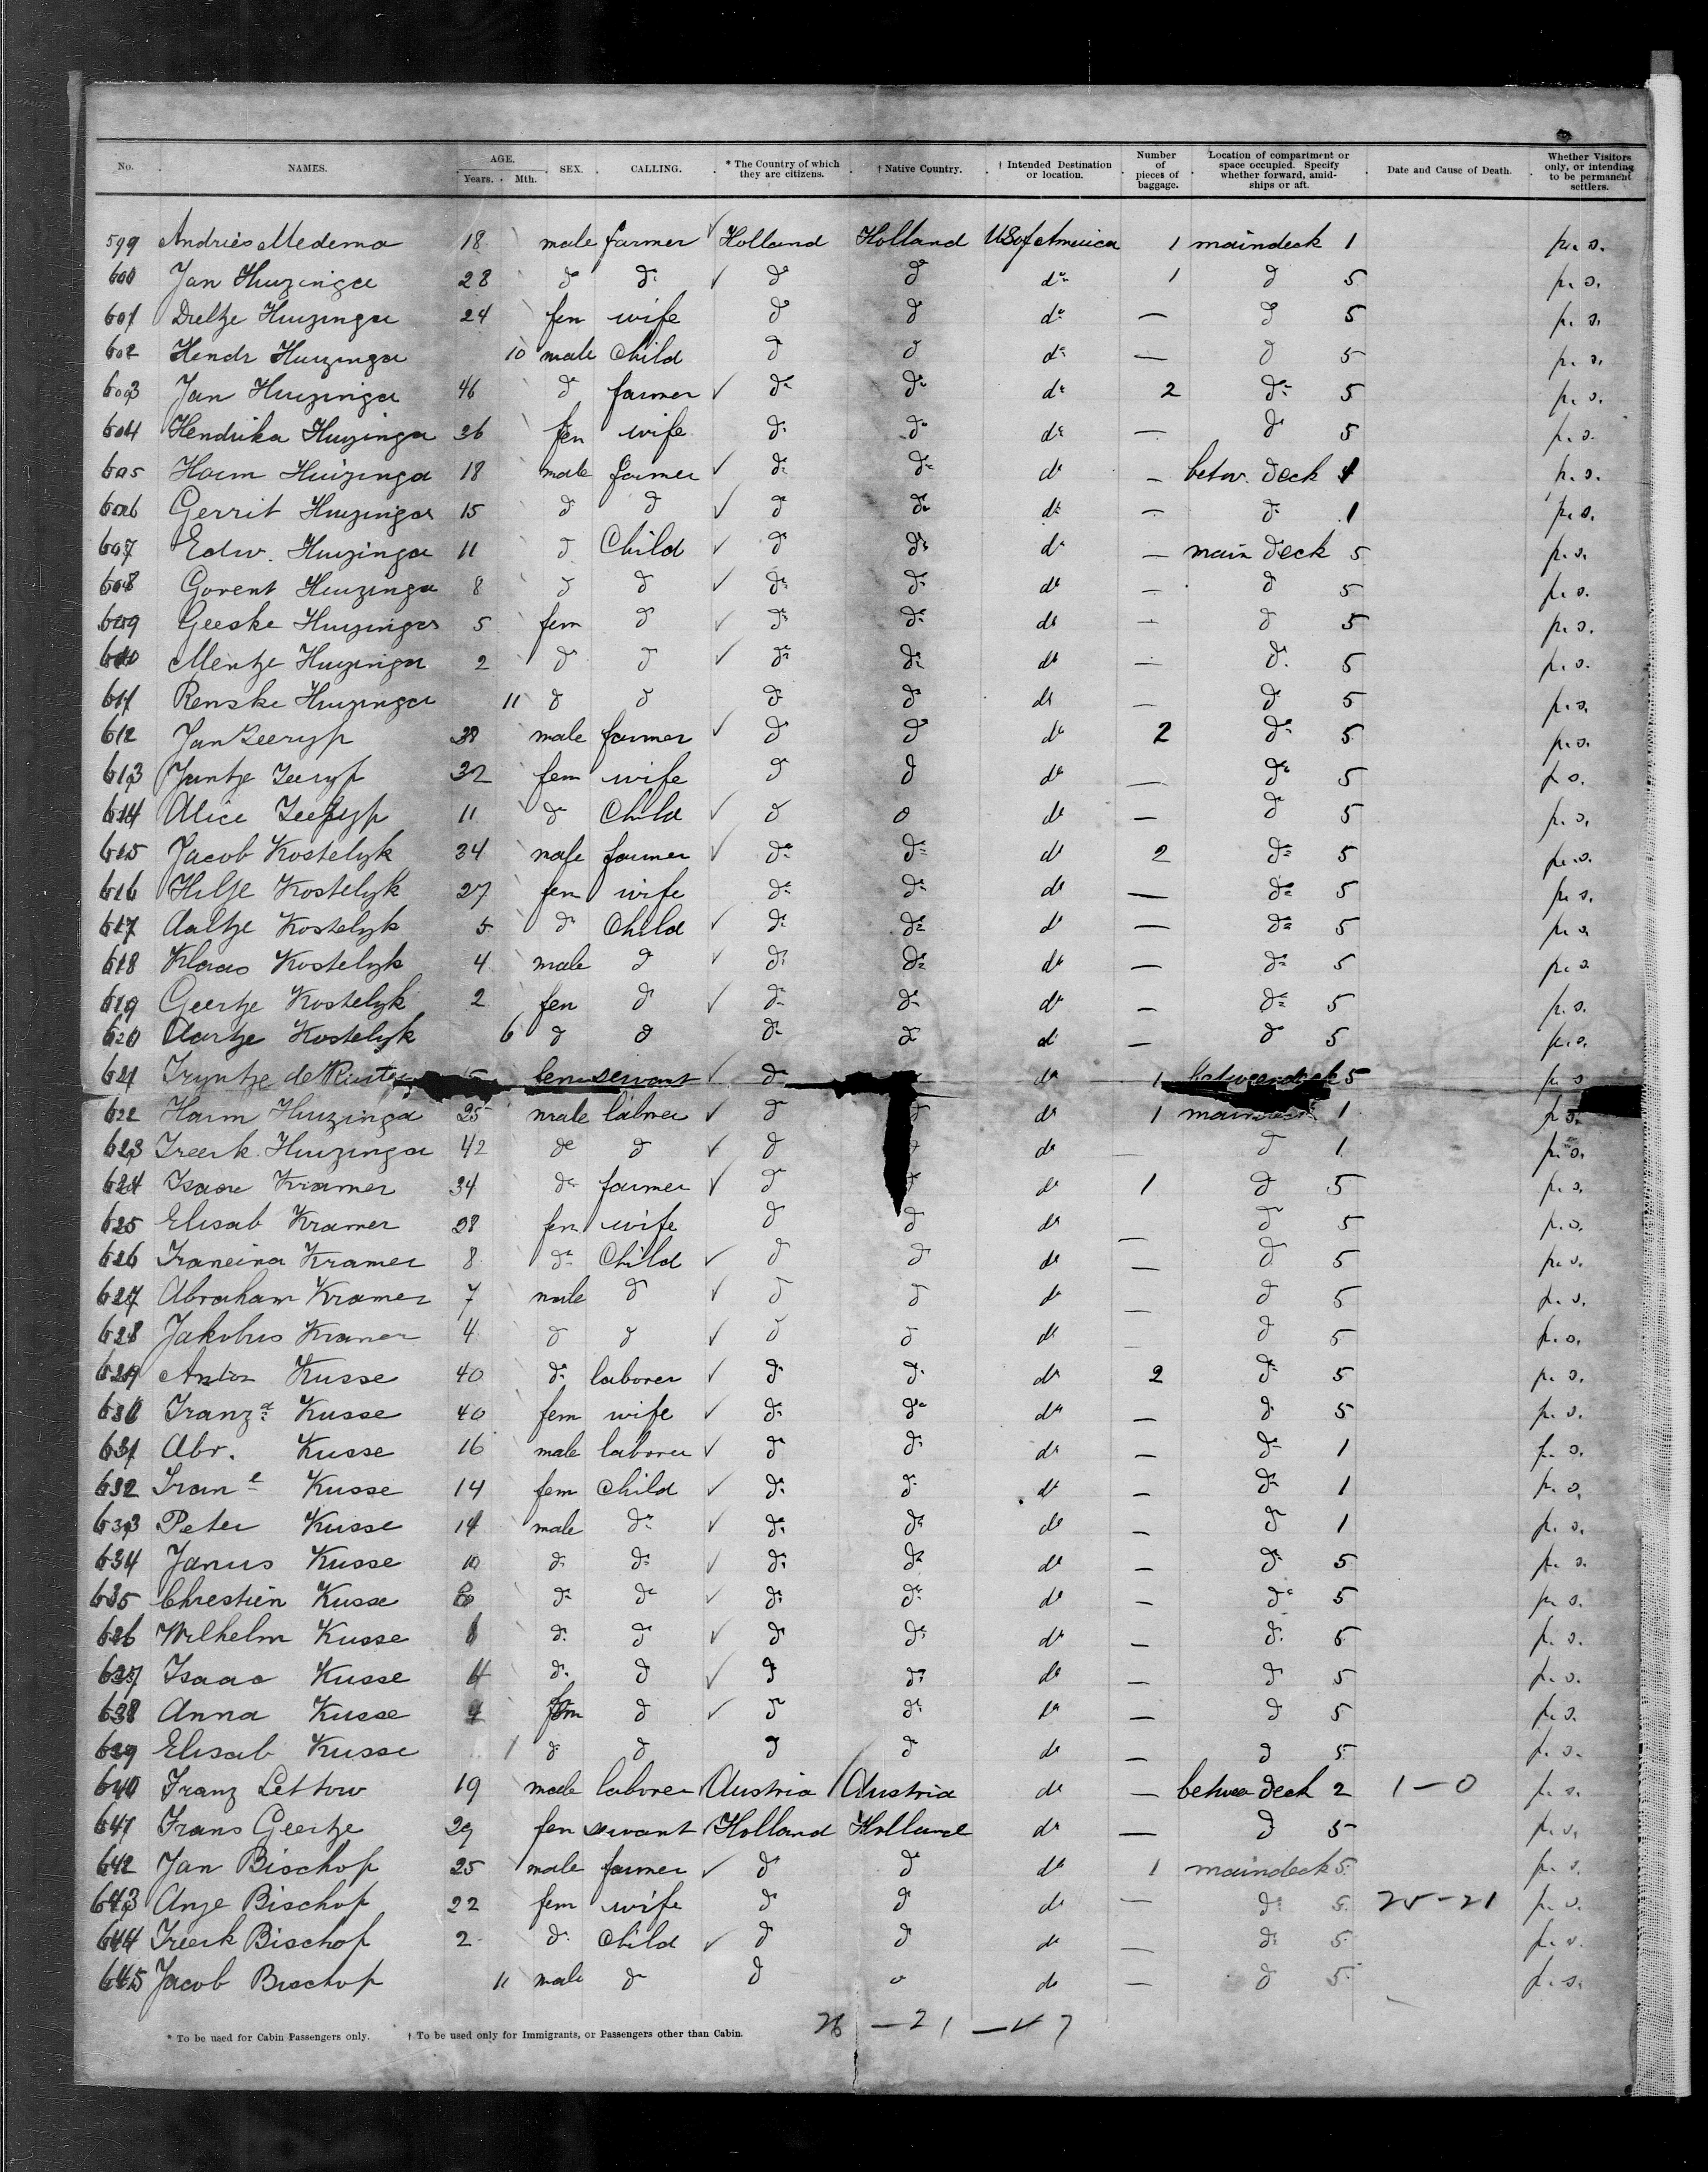 No. NAMES. AGE. Years. Mth. SEX. CALLING. * The Country of which they are citizens. † Native Country. † Intended Destination or location. Number of pieces of baggage. Location of compartment or space occupied. Specify whether forward, amidships or aft. Date and Cause of Death. Whether Visitors only, or intending to be permanent settlers.
599 Andries Medema 18 male farmer Holland Holland US of America 1 maindeck 1 p. s.
600 Jan Huizinga 28 do do do do do 1 do 5 p. s.
601 Dieltje Huizinga 24 fem wife do do do — do 5 p. s.
602 Hendr Huizinga 10 male child do do do — do 5 p. s.
603 Jan Huizinga 46 do farmer do do do 2 do 5 p. s.
604 Hendrika Huizinga 36 fem wife do do do — do 5 p. s.
605 Harm Huizinga 18 male farmer do do do — betw. deck 1 p. s.
606 Gerrit Huizinga 15 do do do do do — do 1 p. s.
607 Edw. Huizinga 11 do Child do do do — main deck 5 p. s.
608 Govent Huizinga 8 do do do do do — do 5 p. s.
609 Geeske Huizinga 5 fem do do do do — do 5 p. s.
610 Mentje Huizinga 2 do do do do do — do 5 p. s.
611 Renske Huizinga 11 do do do do do — do 5 p. s.
612 Jan Zeeryp 38 male farmer do do do 2 do 5 p. s.
613 Jantje Zeeryp 32 fem wife do do do — do 5 p. s.
614 Alice Zeeryp 11 do Child do do do — do 5 p. s.
615 Jacob Kostelyk 34 male farmer do do do 2 do 5 p. s.
616 Hilje Kostelyk 27 fem wife do do do — do 5 p. s.
617 Aaltje Kostelyk 5 do Child do do do — do 5 p. s.
618 Klaas Kostelyk 4 male do do do do — do 5 p. s.
619 Geertje Kostelyk 2 fem do do do do — do 5 p. s.
620 Aartje Kostelyk 6 do do do do do — do 5 p. s.
621 Tryntje de servant do do 1 betweendeck 5 p. s.
622 Harm Huizinga 25 male laborer do do do 1 maindeck 1 p. s.
623 Freerk Huizinga 42 do do do do — do 1 p. s.
624 Isaac Kramer 34 do farmer do do do 1 do 5 p. s.
625 Elisab Kramer 28 fem wife do do do — do 5 p. s.
626 Francina Kramer 8 do Child do do do — do 5 p. s.
627 Abraham Kramer 7 male do do do do — do 5 p. s.
628 Jakobus Kramer 4 do do do do do do 5 p. s.
629 Anton Kusse 40 do laborer do do do 2 do 5 p. s.
630 Franz a Kusse 40 fem wife do do do — do 5 p. s.
631 Abr. Kusse 16 male laborer do do do — do 1 p. s.
632 Fran e Kusse 14 fem child do do do — do 1 p. s.
633 Peter Kusse 14 male do do do do — do 1 p. s.
634 Janus Kusse 10 do do do do do — do 5 p. s.
635 Chrestien Kusse do do do do do — do 5 p. s.
636 Wilhelm Kusse do do do do do — do 5 p. s.
637 Isaac Kusse 4 do do do do do — do 5 p. s.
638 Anna Kusse fem do do do do — do 5 p. s.
639 Elisab Kusse 1 do do do do do — do 5 p. s.
640 Franz Lettow 19 male laborer Austria Austria do — between deck 2 1 — 0 p. s.
641 Frans Geertje 29 fem servant Holland Holland do — do 5 p. s.
642 Jan Bischop 25 male farmer do do do 1 maindeck 5 p. s.
643 Anje Bischop 22 fem wife do do do — do 5 25 — 21 p. s.
644 Freerk Bischop 2 do child do do do — do 5 p. s.
645 Jacob Bischop 11 male do do do do — do 5 p. s.
* To be used for Cabin Passengers only. † To be used only for Immigrants, or Passengers other than Cabin. 26 — 21 — 47